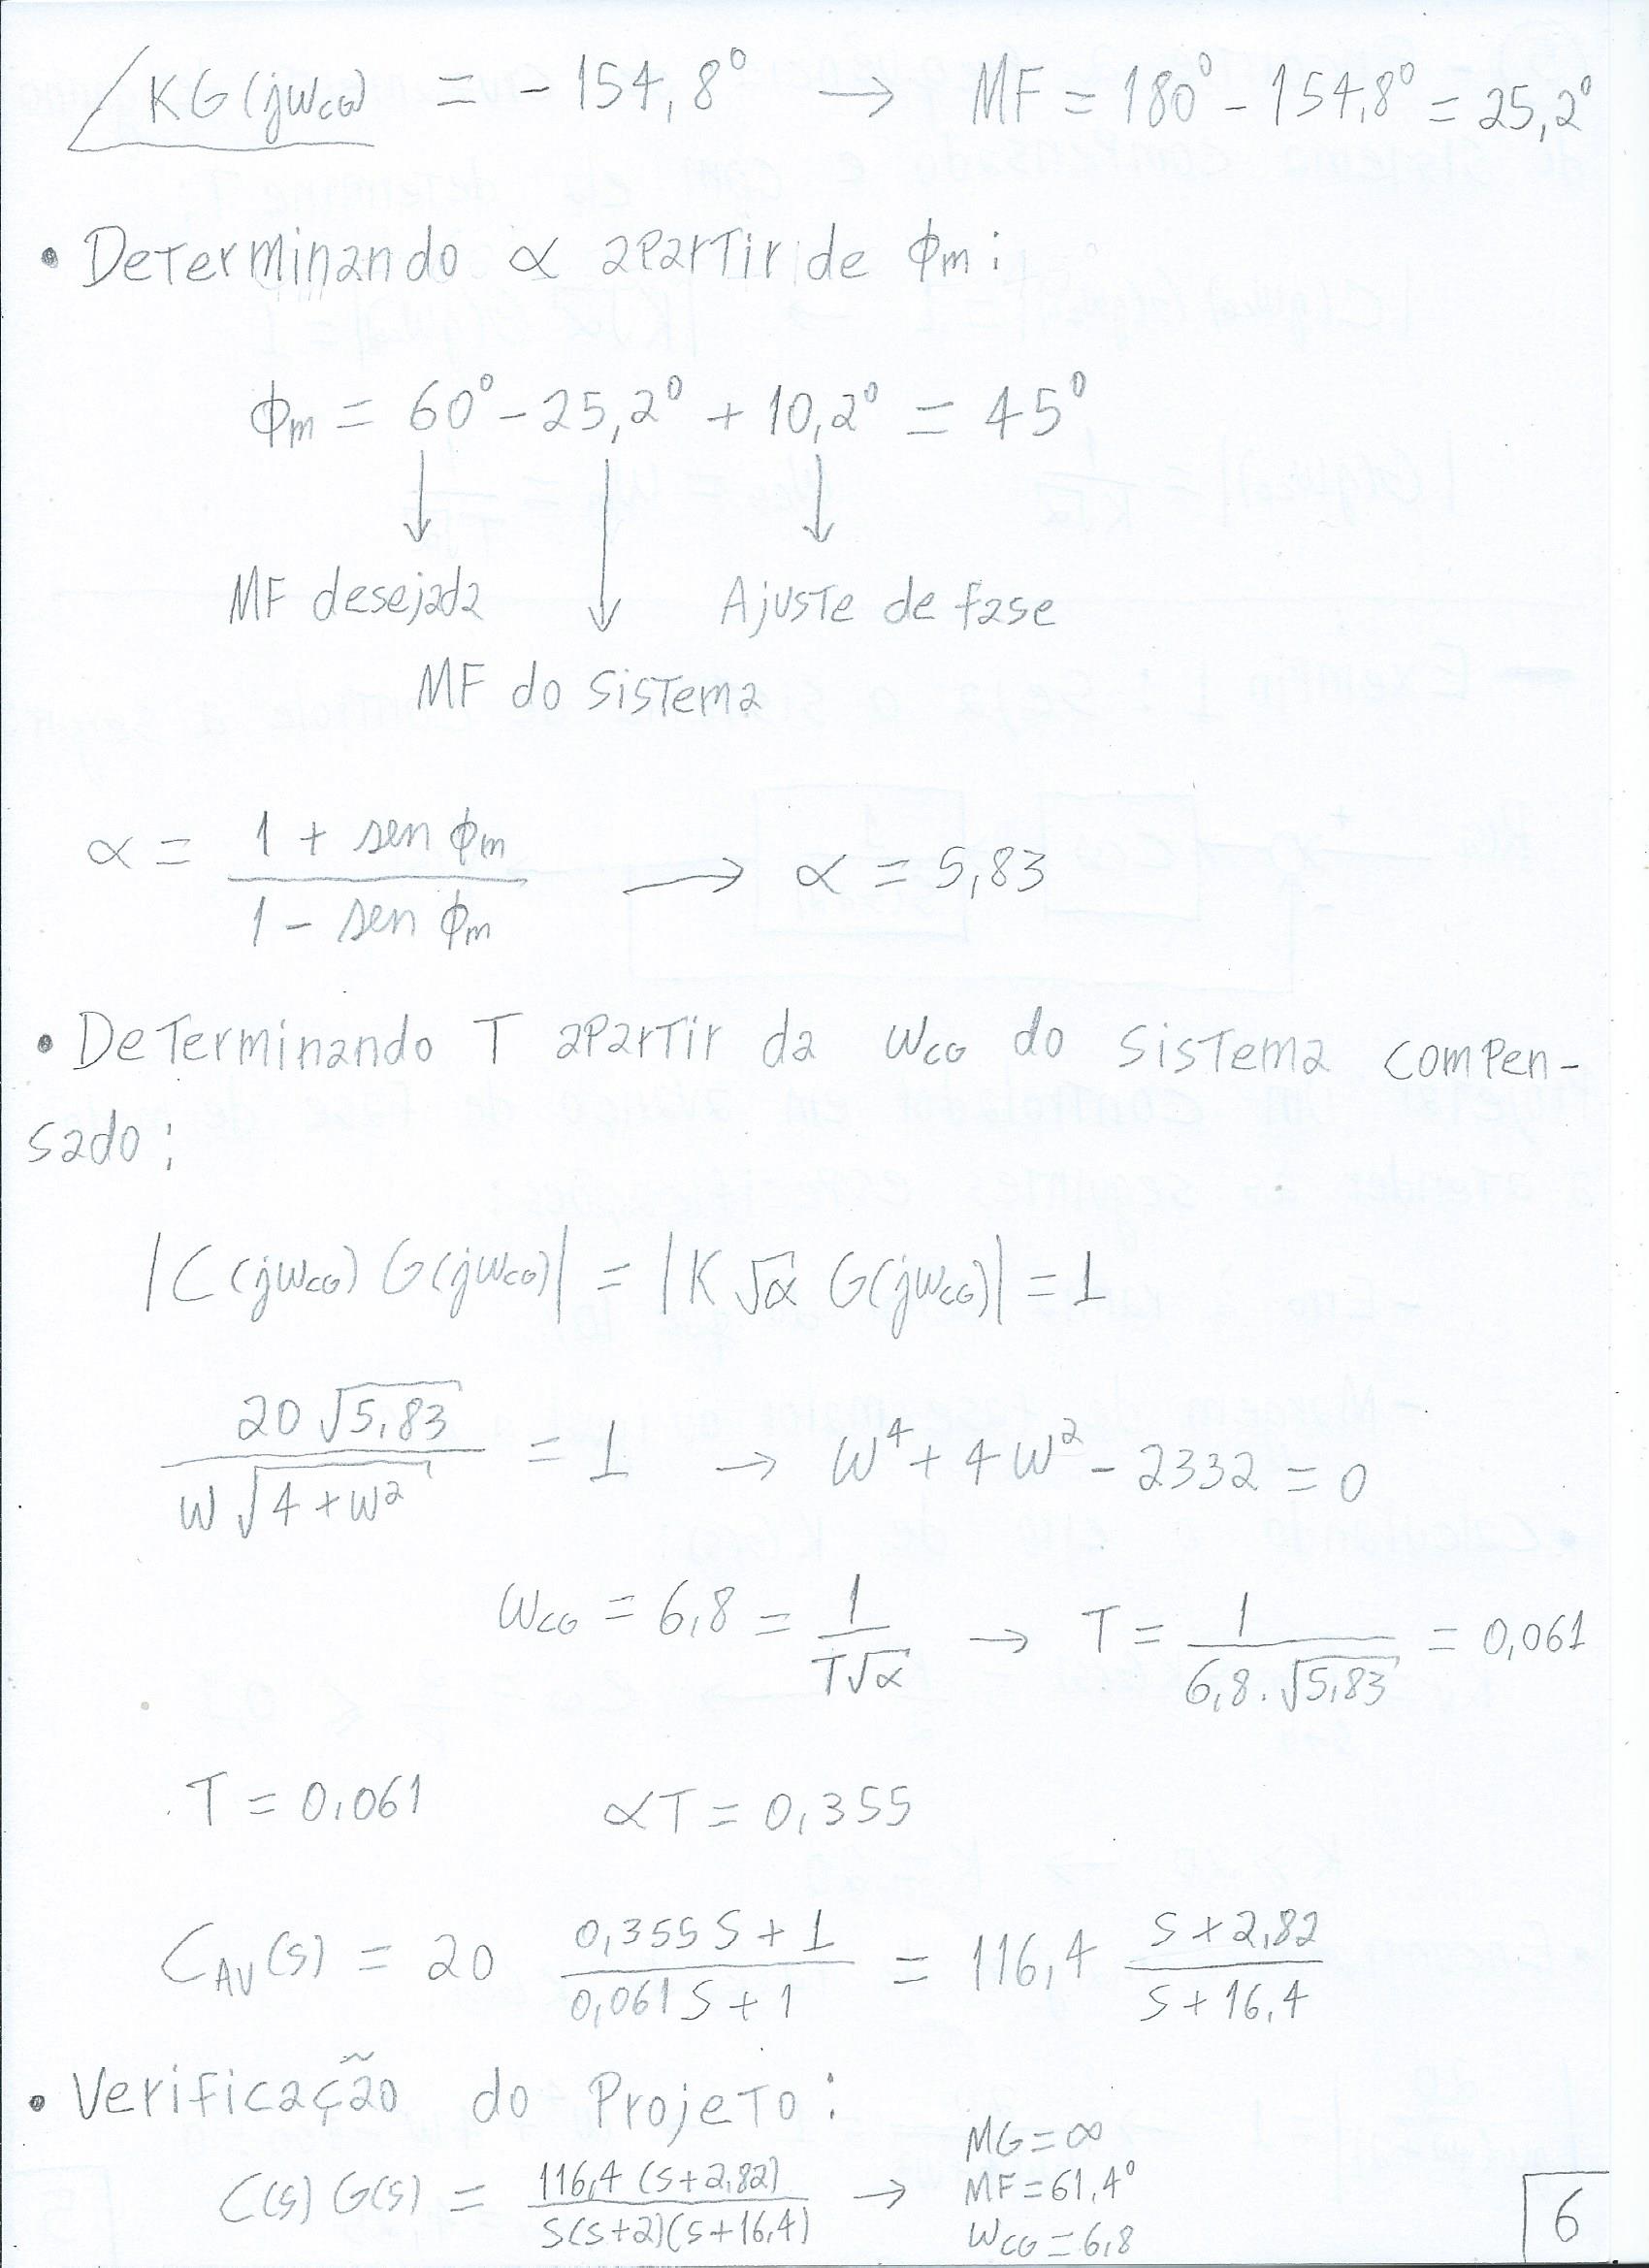 ∠KG(jω_CG) = -154,8° → MF = 180° - 154,8° = 25,2°
• Determinando α apartir de ϕm:
ϕm = 60° - 25,2° + 10,2° = 45°
MF desejada
Ajuste de fase
MF do sistema
α = (1 + sen ϕm)/(1 - sen ϕm) → α = 5,83
• Determinando T apartir da ω_CG do sistema compen-
sado:
|C(jω_CG) G(jω_CG)| = |K√α G(jω_CG)| = 1
20√5,83/(ω√(4+ω²)) = 1 → ω⁴ + 4ω² - 2332 = 0
ω_CG = 6,8 = 1/(T√α) → T = 1/(6,8.√5,83) = 0,061
T = 0,061 αT = 0,355
C_AV(s) = 20 (0,355S + 1)/(0,061S + 1) = 116,4 (S + 2,82)/(S + 16,4)
• Verificação do Projeto:
C(s) G(s) = 116,4 (S+2,82)/(S(S+2)(S+16,4)) →
MG = ∞
MF = 61,4°
ω_CG = 6,8
6